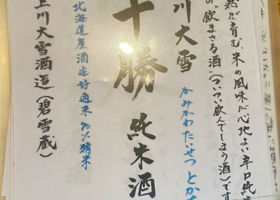 然が育む、米の風味が心地よい辛口純米
の"飲まさる酒(ついつい飲んでしまう酒)"です
上川大雪
かみかわたいせつ とかち
十勝 純米酒
北海道産酒造好適米70%精米
上川大雪酒造(碧雪蔵)